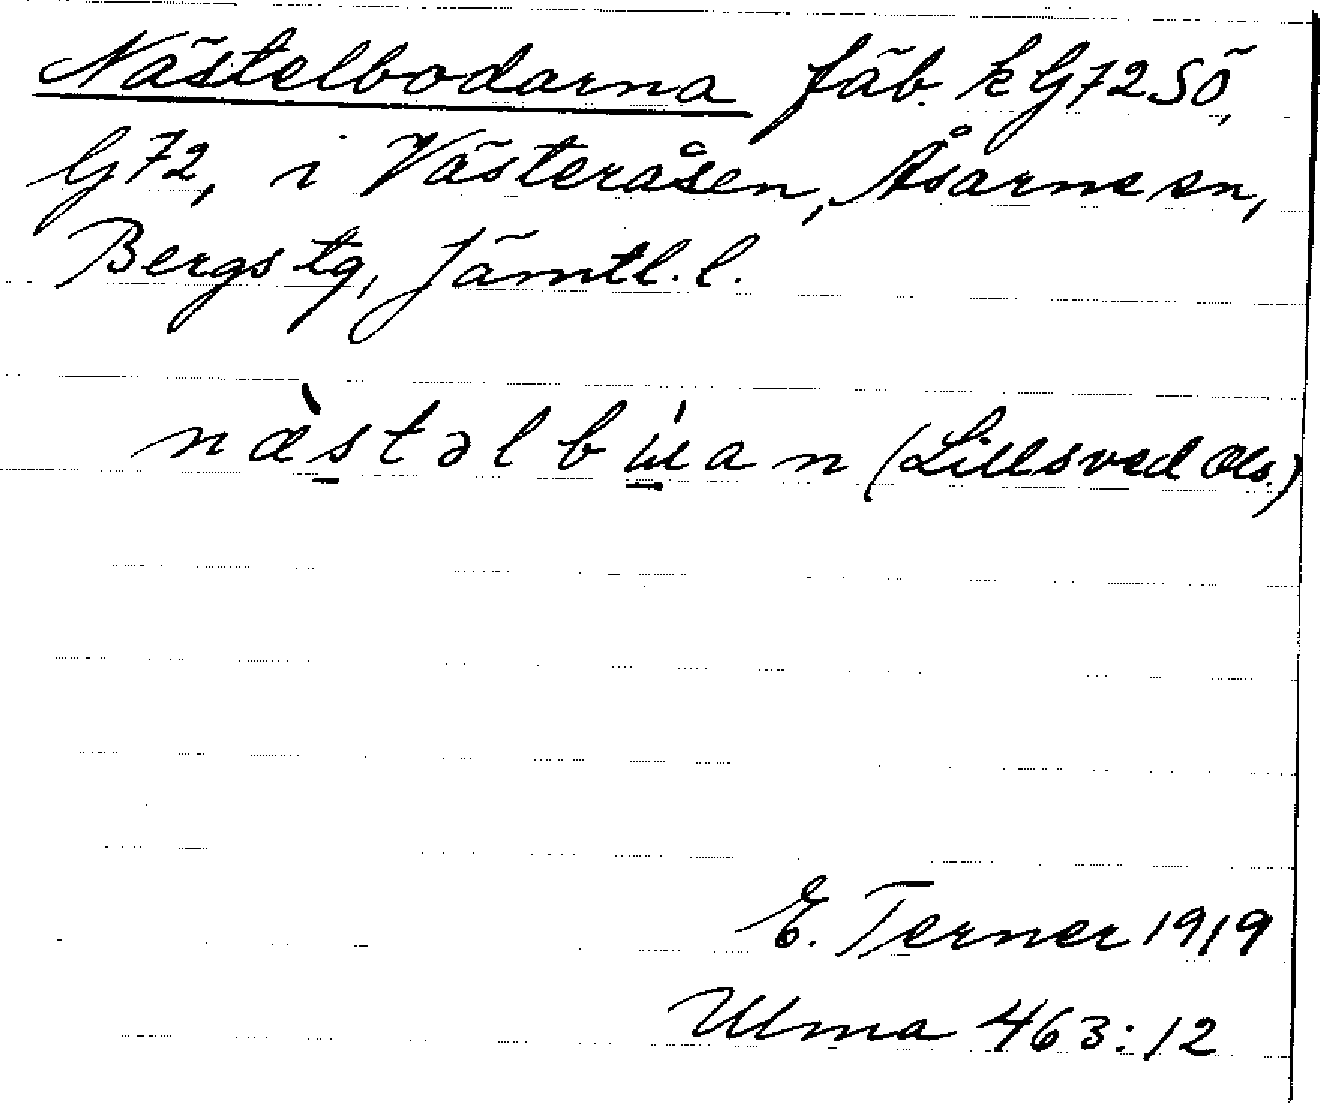 Nästelbodarna fäb. k G72SÖ,
G72, i Västeråsen, Åsarne sn,
Bergs tg, Jämtl. l.
næ̀stəlbɯ́an (Lillsved Ols.)
E. Terner 1919
Ulma 463:12